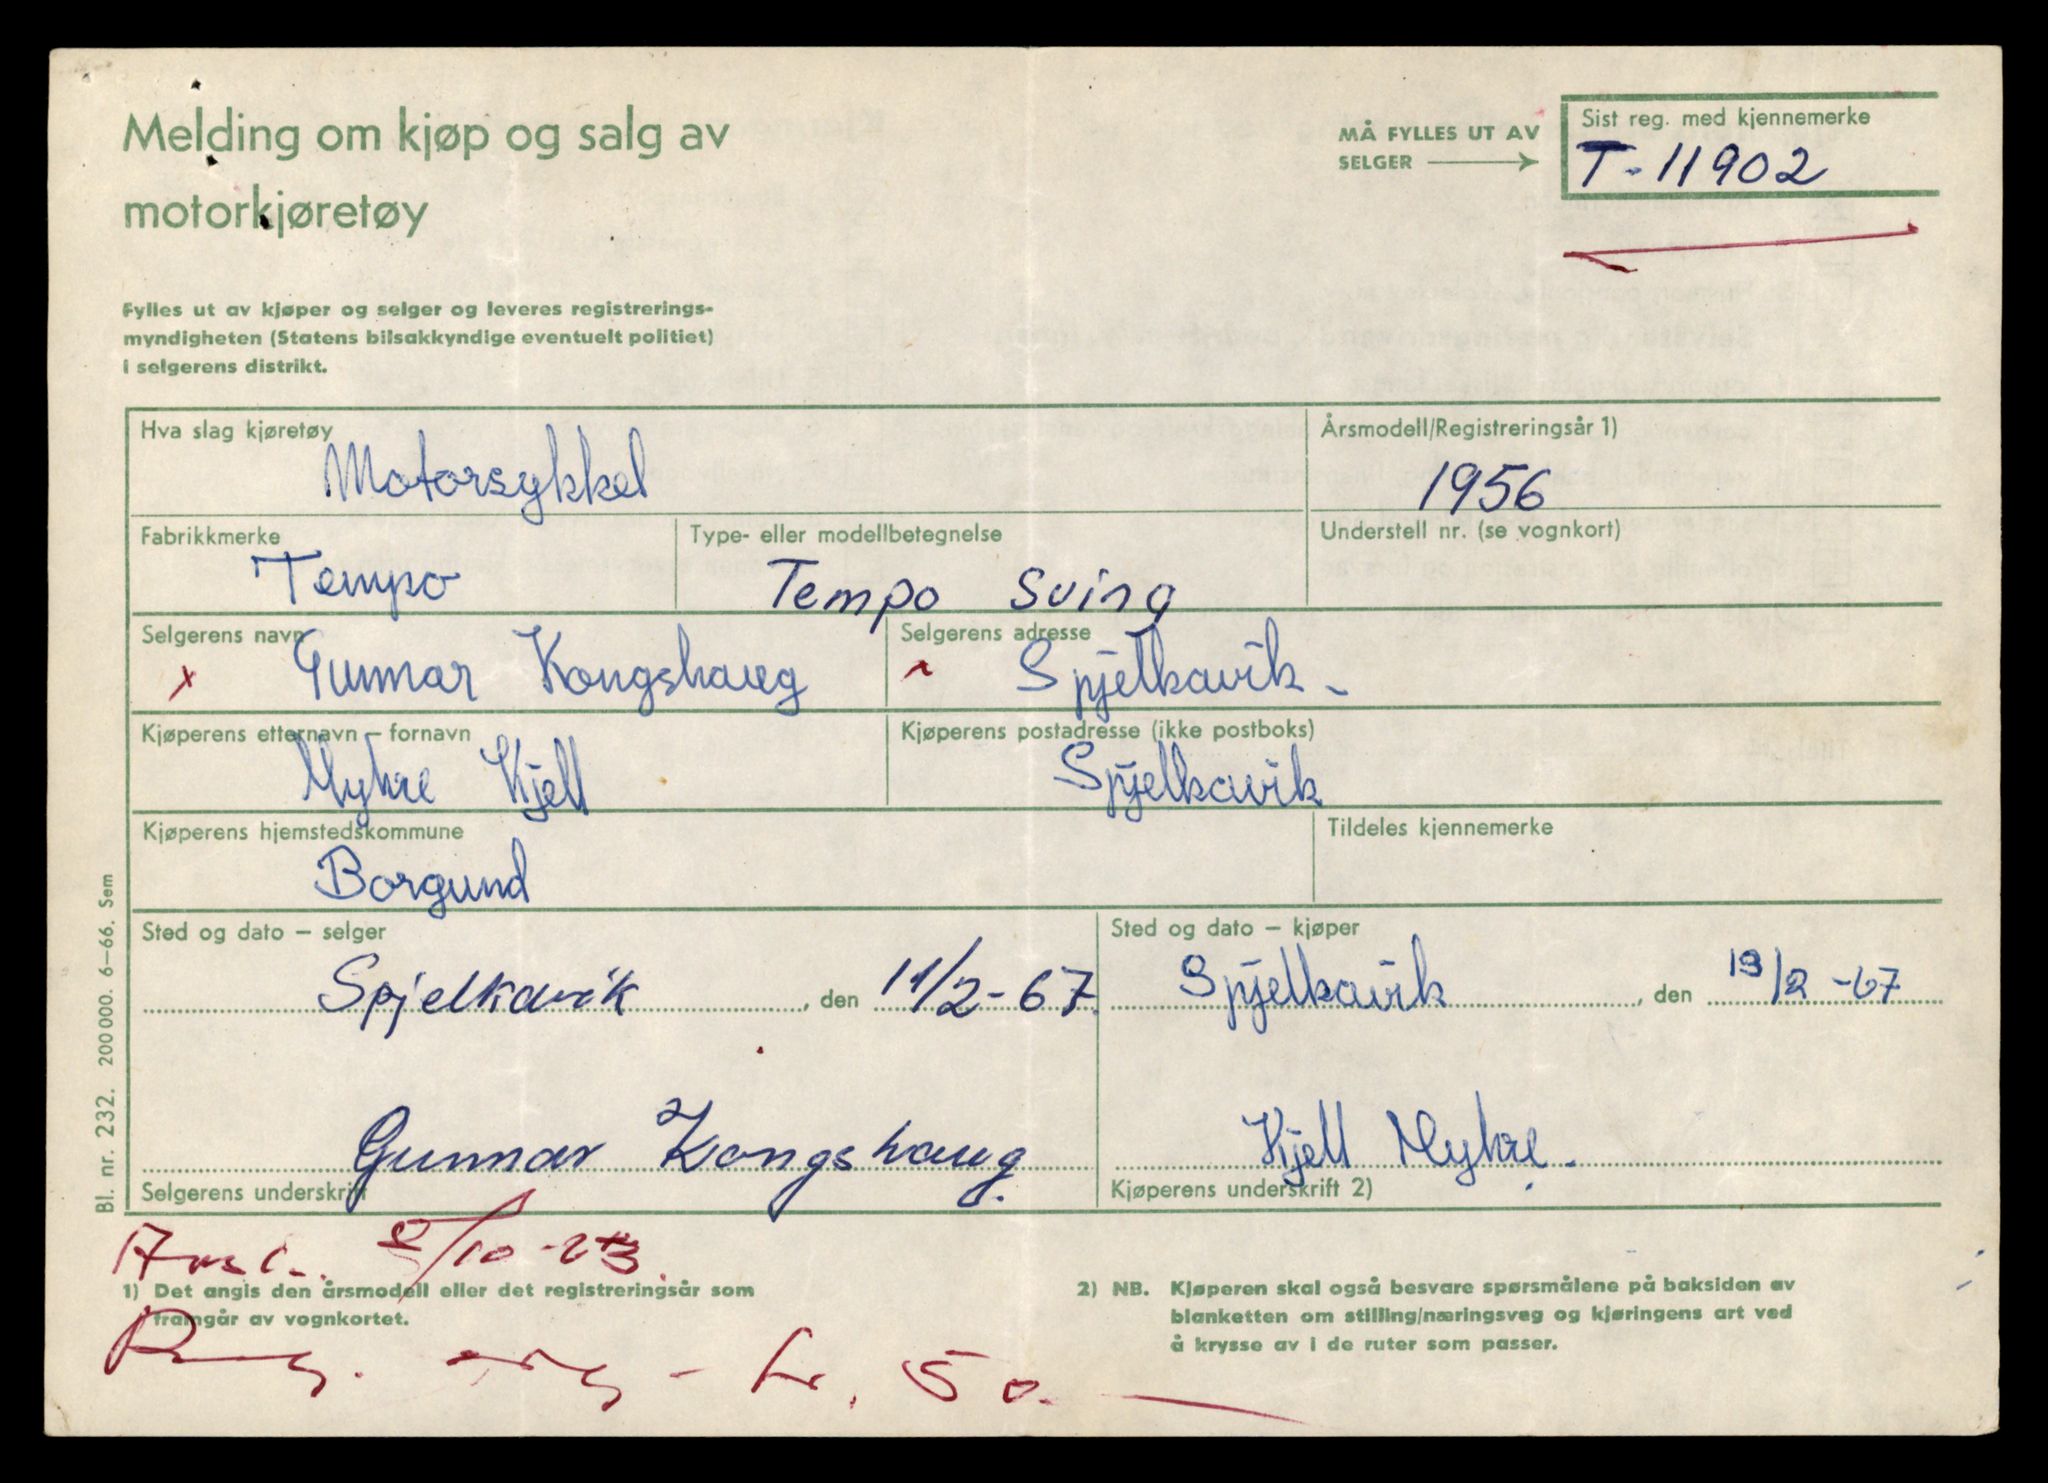 Melding om kjøp og salg av
motorkjøretøy
MÅ FYLLES UT AV
SELGER
Sist reg. med kjennemerke
T-11902
Fylles ut av kjøper og selger og leveres registrerings-
myndigheten (Statens bilsakkyndige eventuelt politiet)
i selgerens distrikt.
Hva slag kjøretøy
Motorsykkel
Årsmodell/Registreringsår 1)
1956
Fabrikkmerke
Tempo
Type- eller modellbetegnelse
Tempo Sving
Understell nr. (se vognkort)
Selgerens navn
x Gunnar Kongshaug
Selgerens adresse
Spjelkavik.
Kjøperens etternavn – fornavn
Myhre Kjell
Kjøperens postadresse (ikke postboks)
Spjelkavik
Kjøperens hjemstedskommune
Borgund
Tildeles kjennemerke
Sted og dato – selger
Spjelkavik, den 11/2-67.
Sted og dato – kjøper
Spjelkavik, den 13/2-67
Gunnar Kongshaug.
Selgerens underskrift
Kjell Myhre.
Kjøperens underskrift 2)
Bl. nr. 232. 200 000. 6–66. Sem
1) Det angis den årsmodell eller det registreringsår som
framgår av vognkortet.
2) NB. Kjøperen skal også besvare spørsmålene på baksiden av
blanketten om stilling/næringsveg og kjøringens art ved
å krysse av i de ruter som passer.
kr. 50.